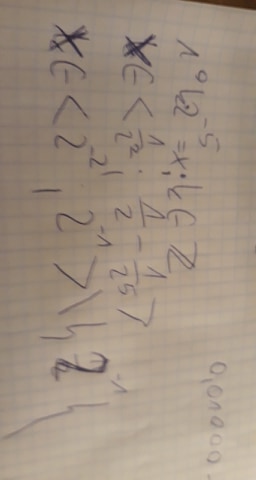 0,01000
1° k2⁻⁵ = x; k ∈ ℤ
x ∈ < 1/2² ; 1/2 - 1/2⁵ >
x ∈ < 2⁻² ; 2⁻¹ > \ { 2⁻¹ }